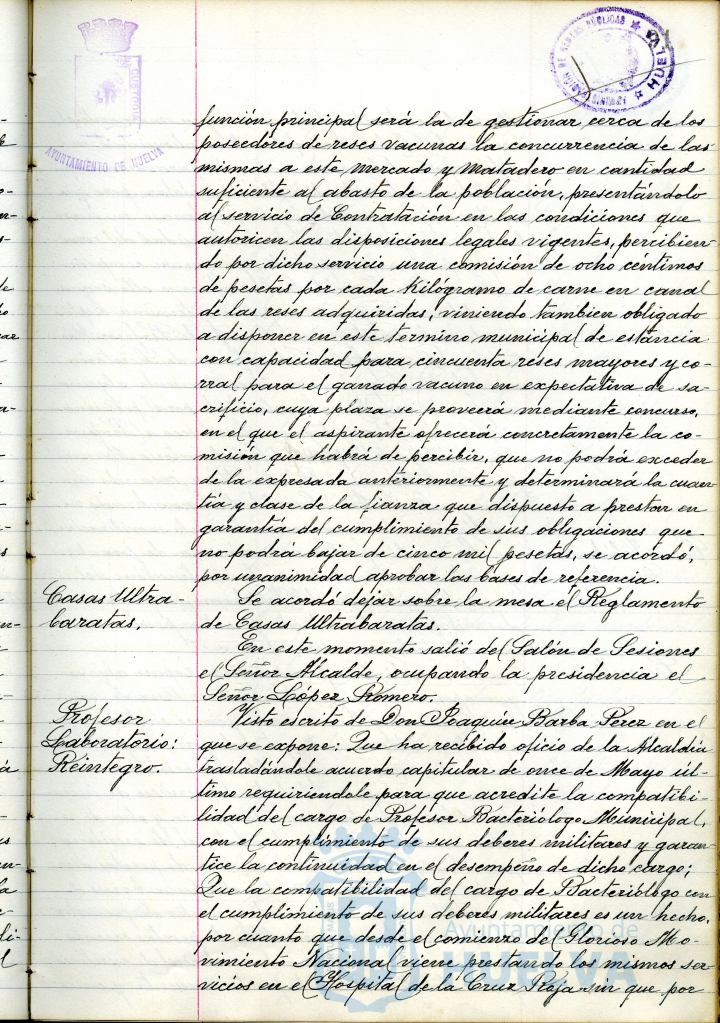 AYUNTAMIENTO DE HUELVA
HUELVA
función principal será la de gestionar cerca de los
poseedores de reses vacunas la concurrencia de las
mismas a este Mercado y Matadero en cantidad
suficiente al abasto de la población, presentándolo
al servicio de Contratación en las condiciones que
autoricen las disposiciones legales vigentes, percibien-
do por dicho servicio una comisión de ocho céntimos
de pesetas por cada Kilógramo de carne en canal
de las reses adquiridas; viniendo tambien obligado
a disponer en este termino municipal de estancia
con capacidad para cincuenta reses mayores y co-
rral para el ganado vacuno en expectativa de sa-
crificio, cuya plaza se proveerá mediante concurso,
en el que el aspirante ofrecerá concretamente la co-
misión que habrá de percibir, que no podrá exceder
de la expresada anteriormente y determinará la cuan-
tía y clase de la fianza que dispuesto a prestar en
garantía del cumplimiento de sus obligaciones que
no podrá bajar de cinco mil pesetas, se acordó,
por unanimidad aprobar las bases de referencia.
Casas Ultra-
baratas.
Se acordó dejar sobre la mesa el Reglamento
de Casas Ultrabaratas.
En este momento salió del Salón de Sesiones
el Señor Alcalde, ocupando la presidencia el
Señor López Romero.
Profesor
Laboratorio:
Reintegro.
Visto escrito de Don Joaquín Barba Perez en el
que se expone: Que ha recibido oficio de la Alcaldía
trasladándole acuerdo capitular de once de Mayo úl-
timo requiriendole para que acredite la compatibi-
lidad del cargo de Profesor Bacteriólogo Municipal,
con el cumplimiento de sus deberes militares y garan-
tice la continuidad en el desempeño de dicho cargo;
Que la compatibilidad del cargo de Bacteriólogo con
el cumplimiento de sus deberes militares es un hecho,
por cuanto que desde el comienzo del Glorioso Mo-
vimiento Nacional viene prestando los mismos ser-
vicios en el Hospital de la Cruz Roja sin que por
Ayuntamiento de
HUELVA